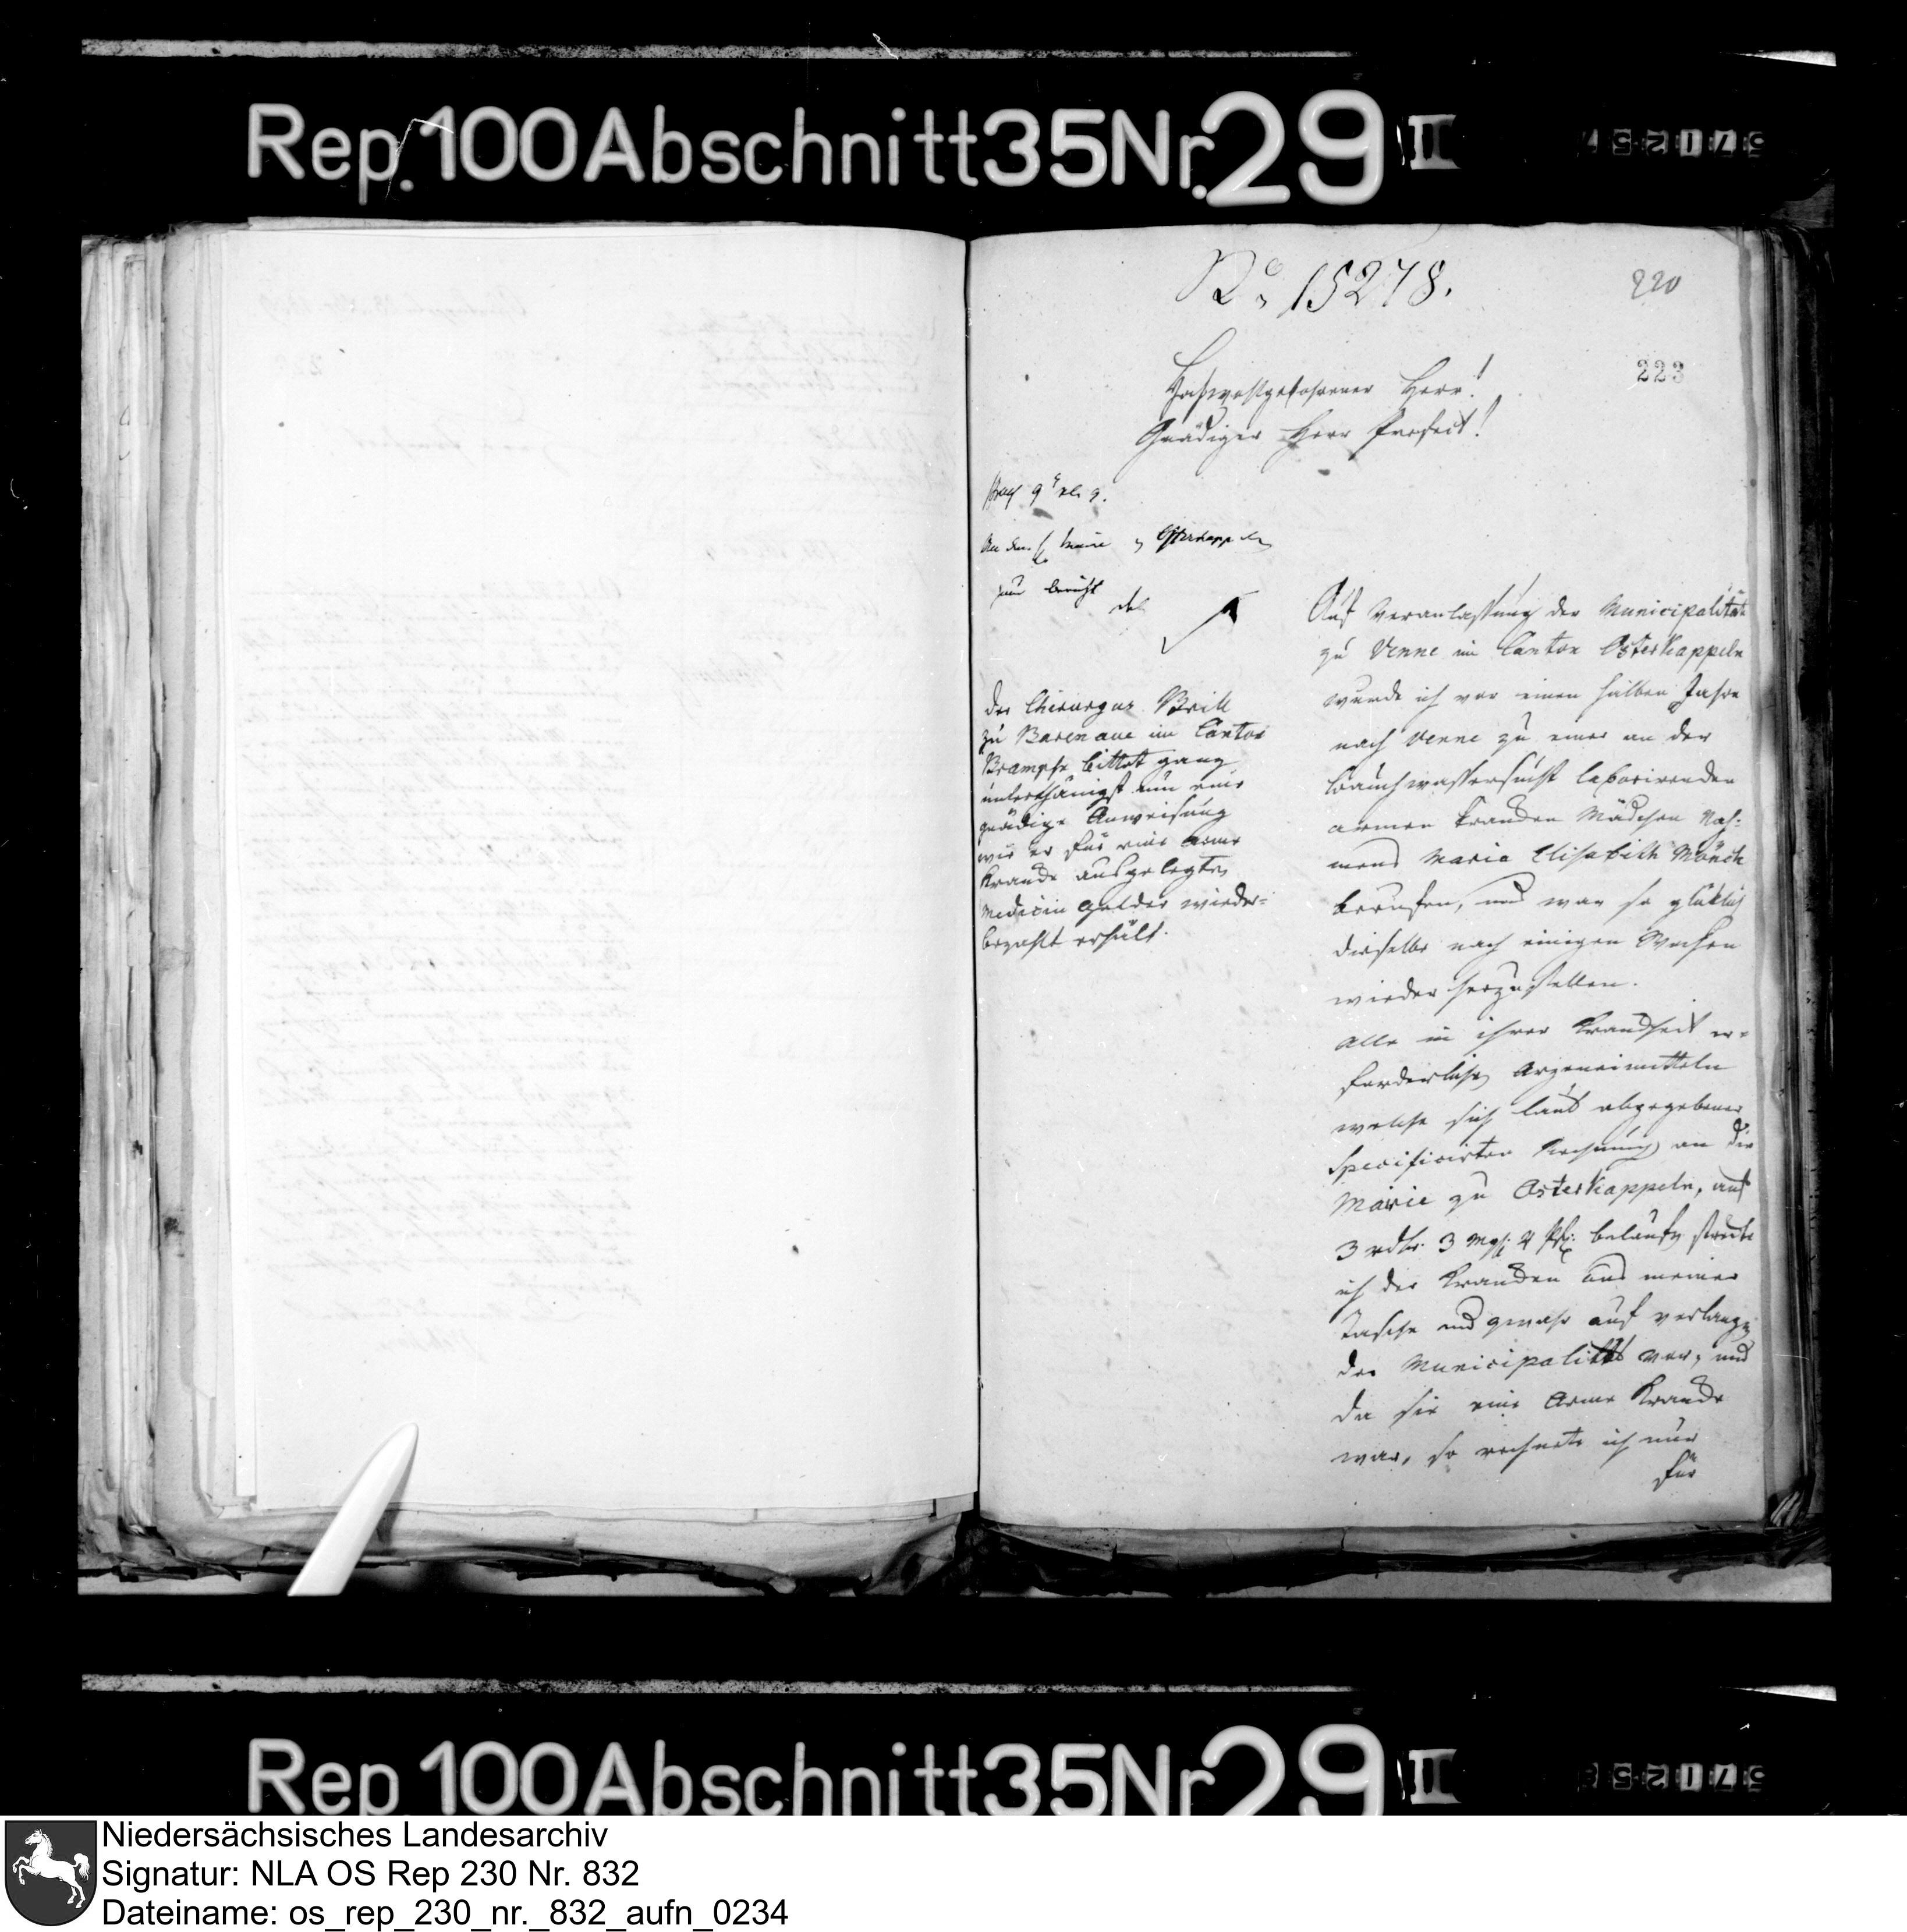 Rep. 100 Abschnitt 35 Nr. 29 II
No. 15278.
220
223
Hochwohlgebohrner Herr!
Gnädiger Herr Prefect!
An den H. Maire z Ostercappeln
zum bericht
Der Chirurgus Brill
zu Barenaue im Canton
Bramsche bittet ganz
unterthänigst um eine
gnädige Anweisung
wie er für eine Arme
Krancke ausgelegten
Medicin Gelder wieder-
bezahlt erhält.
Auf Veranlassung der Municipalität
zu Venne im Canton Osterkappeln
wurde ich vor einen halben Jahre
nach Venne zu einer an der
Bauchwassersucht laborirenden
armen krancken Mädchen Nah-
mens Maria Elisabeth Mönch
berufen, und war so glücklich
dieselbe nach einigen Wochen
wieder herzustellen.
Alle in ihrer Kranckheit er-
forderlichen Arzeneimitteln
welche sich laut abgegebener
specificirten Rechnung an die
Mairie zu Osterkappeln, auf
3 rdlr. 3 Mgl. 4 Pf. belaufen streckte
ich der Krancken aus meiner
Tasche und zwahr auf verlangen
der Municipalität vor, und
da sie eine Arme Krancke
war, so rechnete ich nur
für
Rep 100 Abschnitt 35 Nr 29 II
Niedersächsisches Landesarchiv
Signatur: NLA OS Rep 230 Nr. 832
Dateiname: os_rep_230_nr._832_aufn_0234